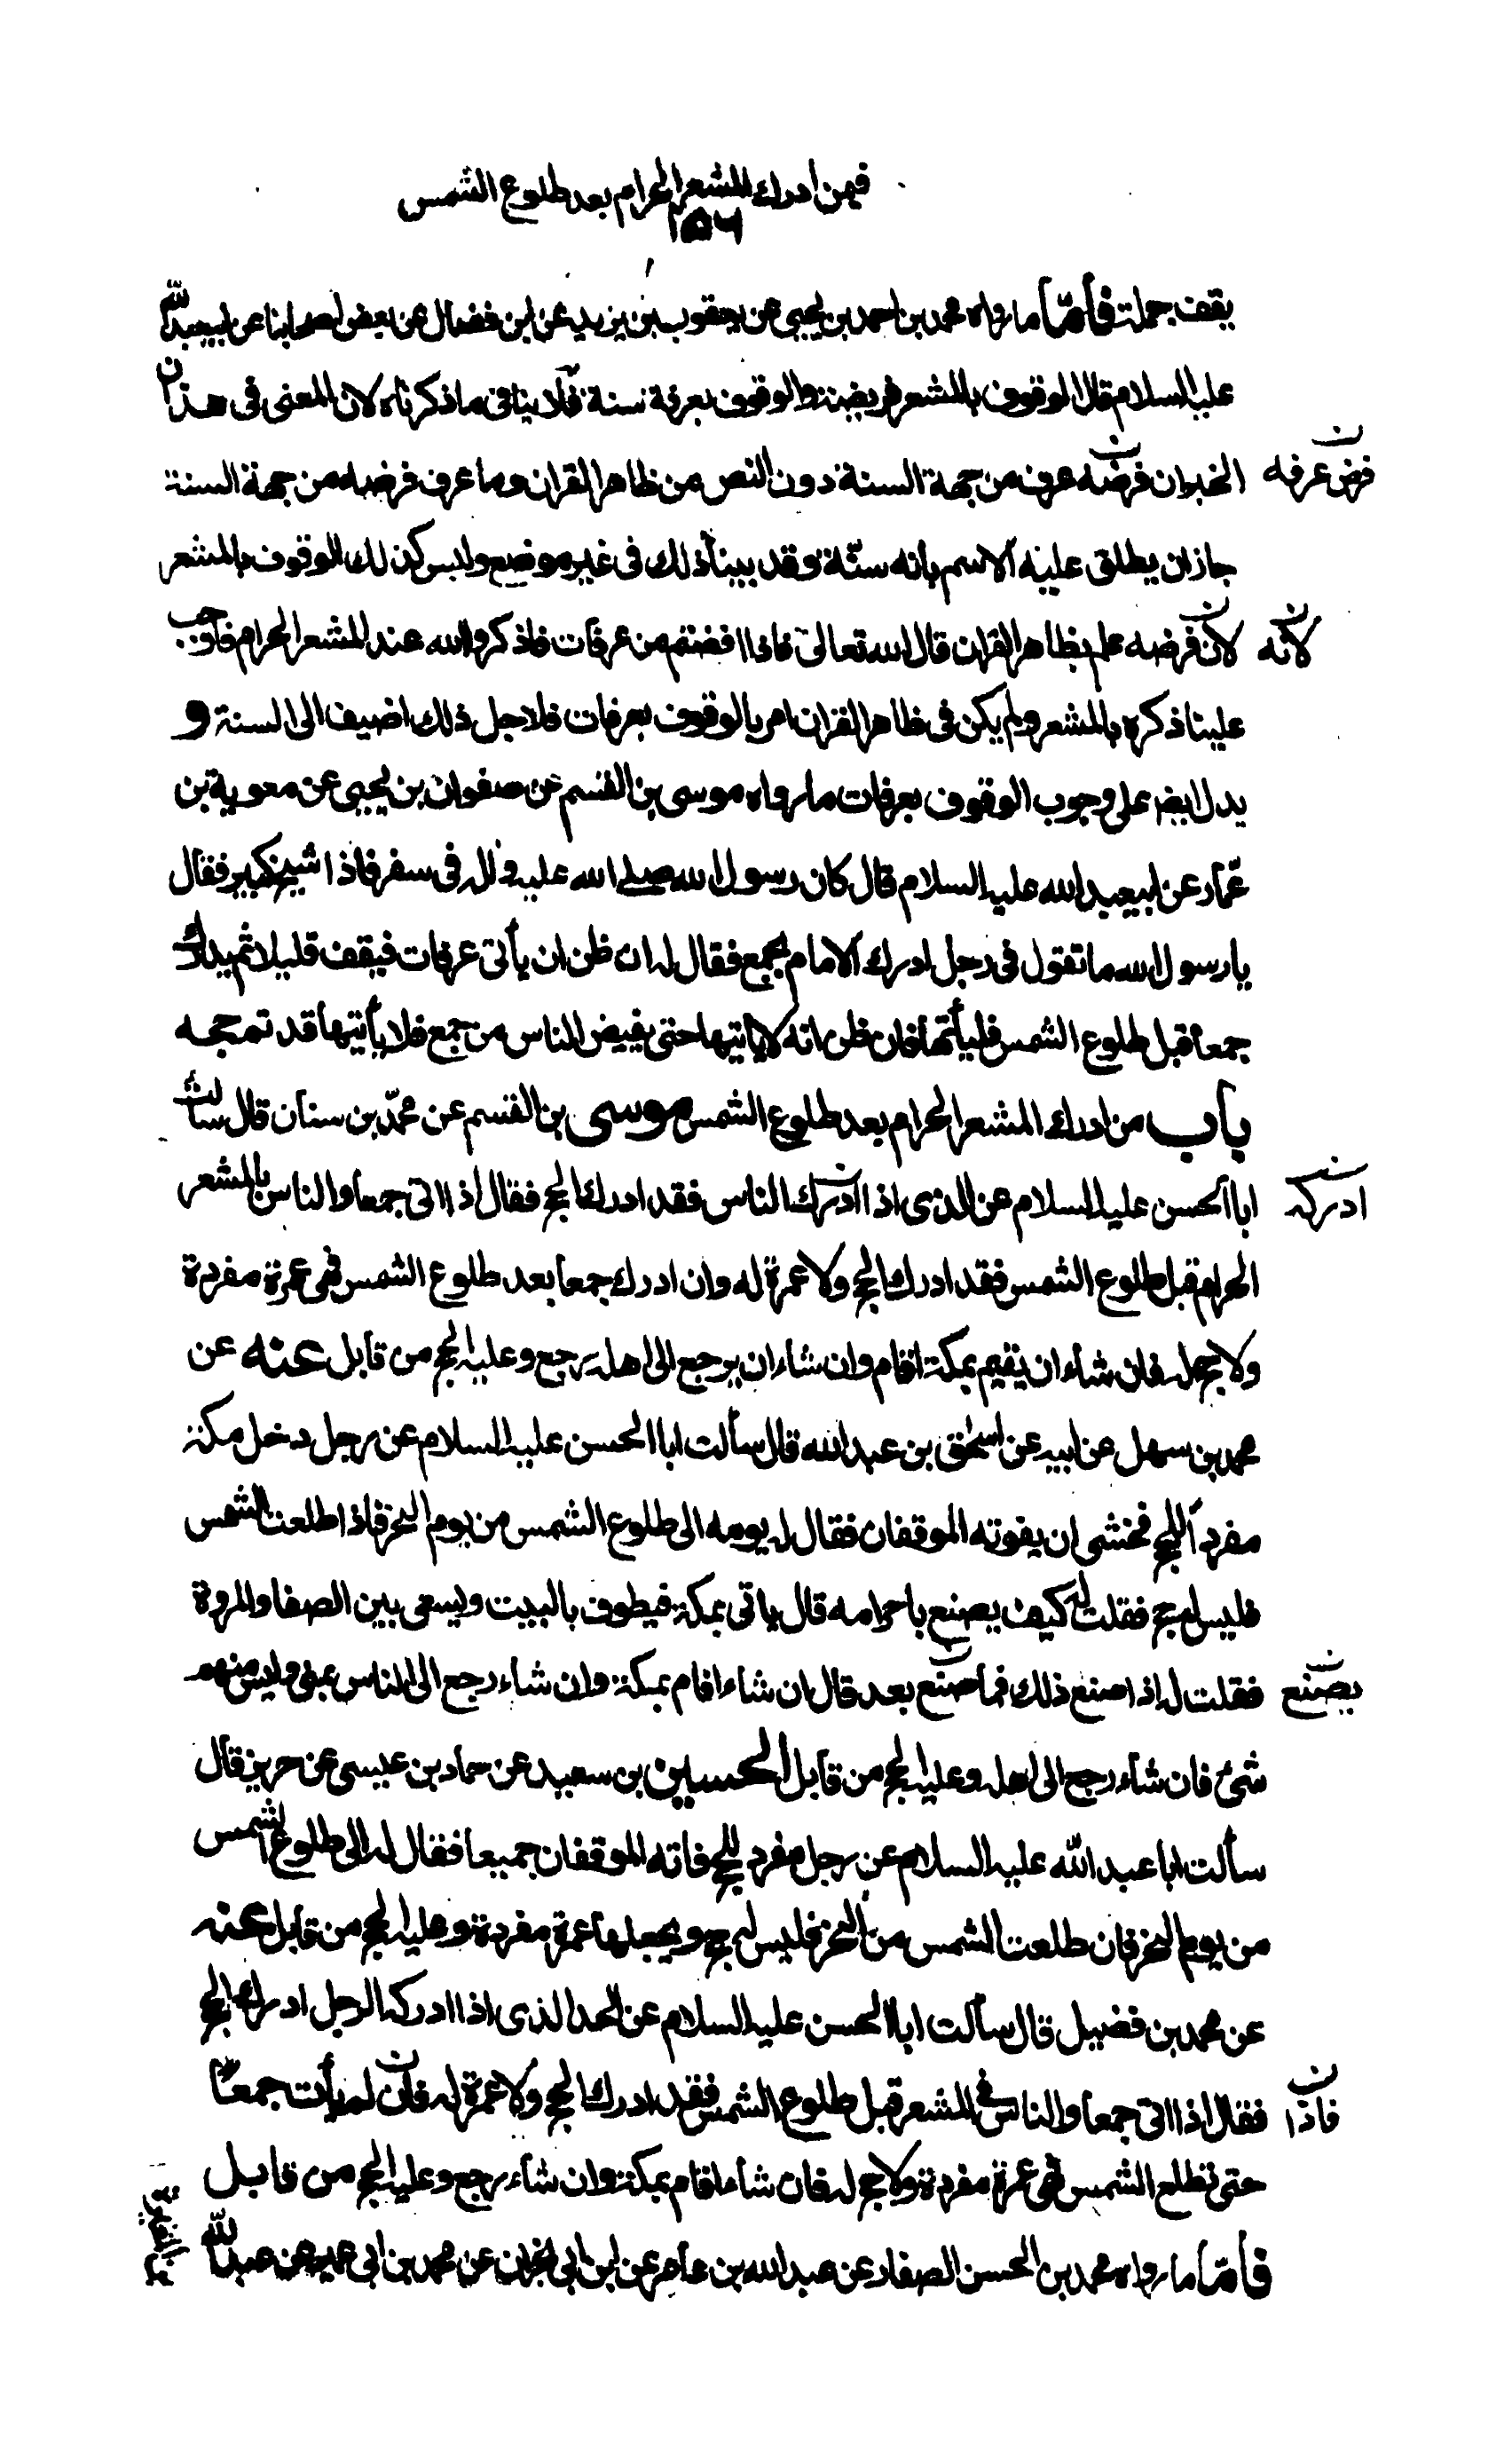 فيمن ادرك المشعر الحرام بعد طلوع الشمس
١٥٦
يقف جملة فأمّا ما رواه محمد بن احمد بن يحيى عن يعقوب بن يزيد عن ابن فضال عن بعض اصحابنا عن ابيعبد الله
عليه السلام قال الوقوف بالمشعر فريضة والوقوف بعرفة سنة فلا ينافى ما ذكرناه لان المعنى فى هذا ن
الخبر ان فرضه عرف من جهة السنة دون النص من ظاهر القران وما عرف فرضه من جهة السنة
فرض عرفه ن
جاز ان يطلق عليه الاسم بانه سنّة وقد بينا ذلك فى غير موضع وليس كذلك الوقوف بالمشعر
لان فرضه علم بظاهر القران قال الله تعالى فاذا افضتم من عرفات فاذكروا الله عند المشعر الحرام فاوجب
لانه ن
علينا ذكره بالمشعر ولم يكن فى ظاهر القران امر بالوقوف بعرفات فلاجل ذلك اضيف الى السنة و
يدل ايضا على وجوب الوقوف بعرفات ما رواه موسى بن القسم عن صفوان بن يحيى عن معوية بن
عمّار عن ابيعبد الله عليه السلام قال كان رسول الله صلى الله عليه واله فى سفر فاذا شيخ كبير فقال
يا رسول الله ما تقول فى رجل ادرك الامام بجمع فقال له ان ظن ان يأتى عرفات فيقف قليلا ثم يدرك
جمعا قبل طلوع الشمس فليأتها فان ظن انه لا يأتيها حتى يفيض الناس من جمع فلا يأتيها قد تم حجه
باب من ادرك المشعر الحرام بعد طلوع الشمس موسى بن القسم عن محمّد بن سنان قال سألت
ابا الحسن عليه السلام عن الذى اذا ادرك الناس فقد ادرك الحج فقال اذا اتى جمعا والناس بالمشعر
ادركه ن
الحرام قبل طلوع الشمس فقد ادرك الحج ولا عمرة له وان ادرك جمعا بعد طلوع الشمس فهى عمرة مفردة
ولا حج له فان شاء ان يقيم بمكة اقام وان شاء ان يرجع الى اهله رجع وعليه الحج من قابل عنه عن
محمد بن سهل عن ابيه عن اسحق بن عبد الله قال سألت ابا الحسن عليه السلام عن رجل دخل مكة
مفردا للحج فخشى ان يفوته الموقفان فقال له يومه الى طلوع الشمس من يوم النحر فاذا طلعت الشمس
فليس له حج فقلت له كيف يصنع باحرامه قال ياتى بمكة فيطوف بالبيت ويسعى بين الصفا والمروة
فقلت له اذا صنع ذلك فما صنع بعد قال ان شاء اقام بمكة وان شاء رجع الى الناس بمنى وليس منهم
يصنع ن
شئ فان شاء رجع الى اهله وعليه الحج من قابل الحسين بن سعيد عن حماد بن عيسى عن حريز قال
سألت ابا عبد الله عليه السلام عن رجل مفرد للحج فاته الموقفان جميعا فقال له الى طلوع الشمس
من يوم النحر فان طلعت الشمس من النحر فليس له حج ويجعلها عمرة مفردة وعليه الحج من قابل عنه
عن محمد بن فضيل قال سألت ابا الحسن عليه السلام عن الحد الذى اذا ادركه الرجل ادرك الحج
فقال اذا اتى جمعا والناس فى المشعر قبل طلوع الشمس فقد ادرك الحج ولا عمرة له فان لم يأت جمعا
فاذا ن
حتى تطلع الشمس فهى عمرة مفردة ولا حج له فان شاء اقام بمكة وان شاء رجع وعليه الحج من قابل
فأمّا ما رواه محمد بن الحسن الصفار عن عبد الله بن عامر عن ابن ابى نجران عن محمد بن ابى عمير عن عبد الله